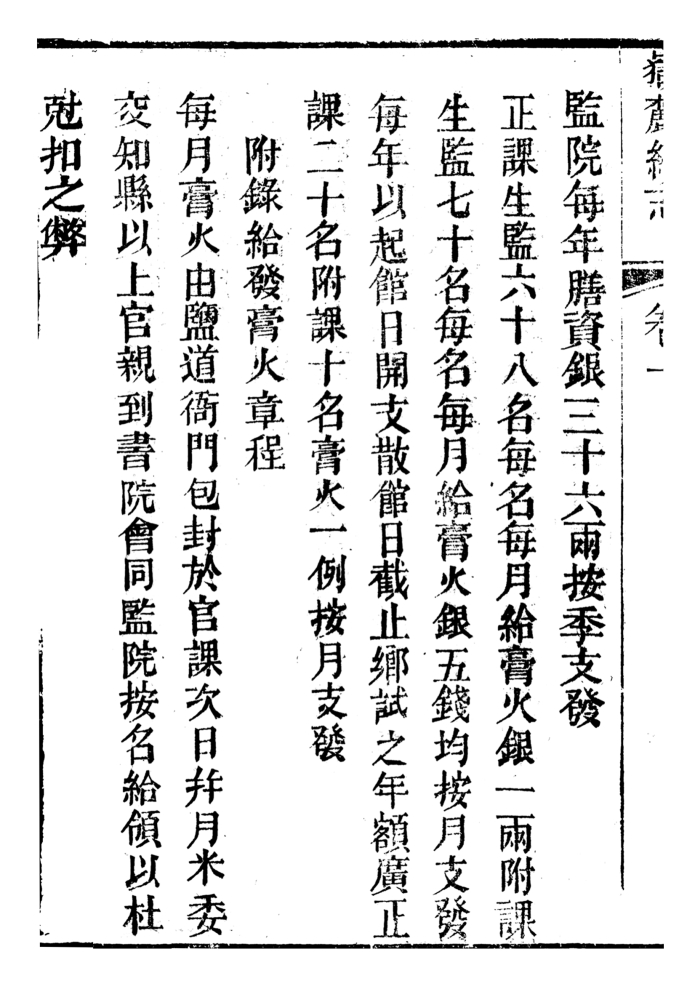 嶽麓續志 卷一
監院每年膳資銀三十六兩按季支發
正課生監六十八名每名每月給膏火銀一兩附課
生監七十名每名每月給膏火銀五錢均按月支發
每年以起館日開支散館日截止鄉試之年額廣正
課二十名附課十名膏火一例按月支發
附錄給發膏火章程
每月膏火由鹽道衙門包封於官課次日幷月米委
交知縣以上官親到書院會同監院按名給領以杜
尅扣之弊